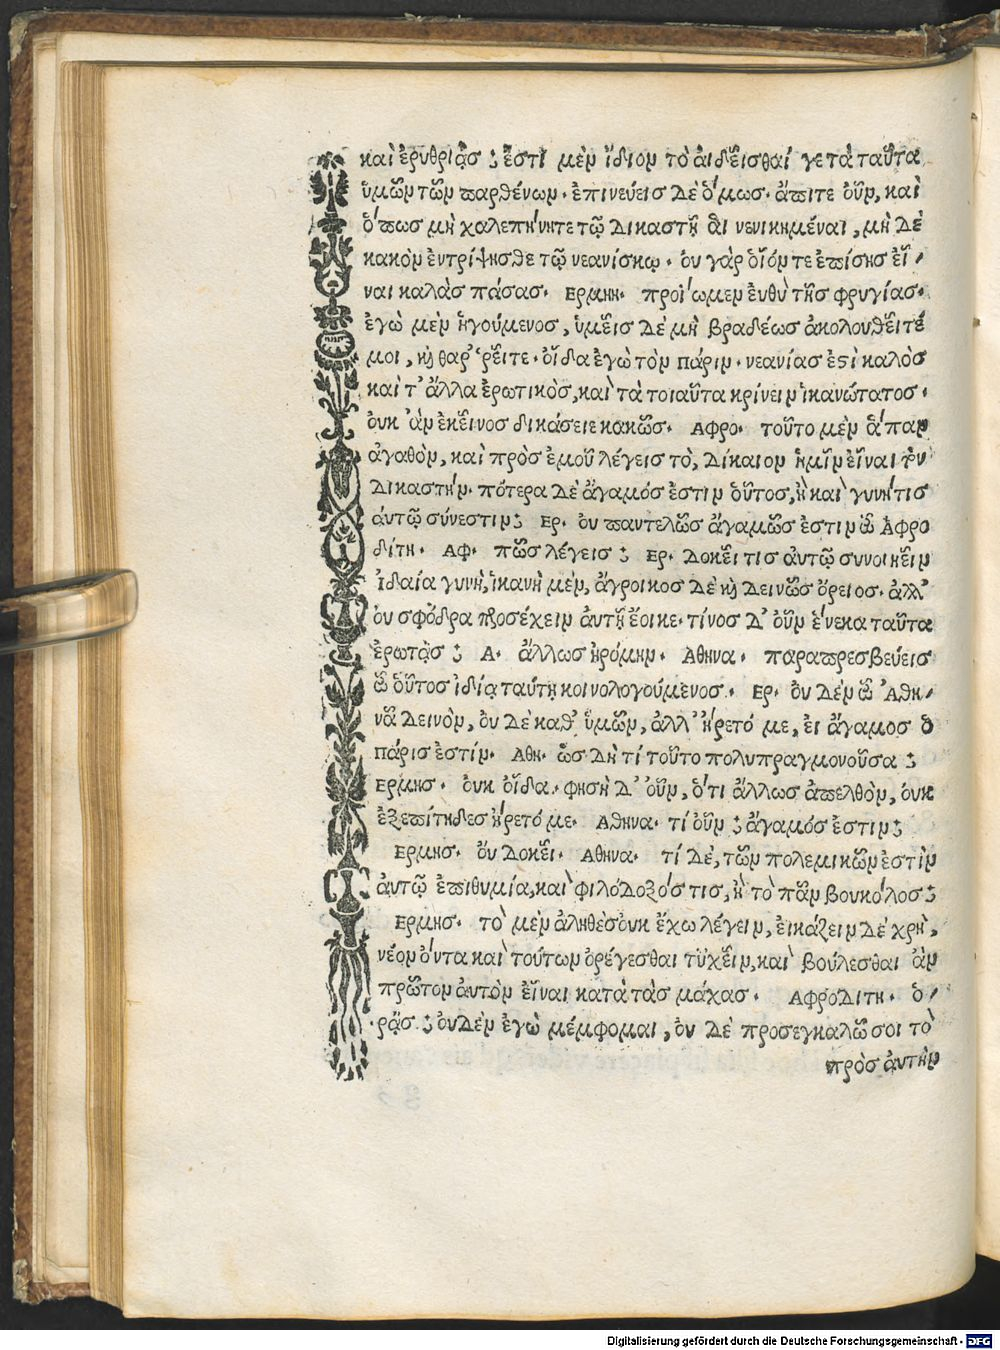 καὶ ἐρυθριᾷσ ; ἔστι μὲν ἴδιον τὸ ἀιδεῖισθαί γε τὰ ταῦτα
ὑμῶν τῶν παρθένων· ἐπινεύεις δὲ ὅμωσ· ἄπιτε οὖν, καὶ
ὅπωσ μὴ χαλεπήνητε τῷ δικαστῇ ἁι νενικημέναι, μὴ δὲ
κακὸν ἐντρίψησθε τῷ νεανίσκῳ· ὀυ γὰρ ὁῖόν τε ἐπίσησ εἶ-
ναι καλὰσ πάσασ· ΕΡΜΗΗ· προΐωμεν ἐυθὺ τῆσ φρυγίασ·
ἐγὼ μὲν ἡγούμενοσ, ὑμεῖισ δὲ μὴ βραδέωσ ἀκολουθεῖιτέ
μοι, κὴ θαῤῥεῖιτε· ὀῖδα ἐγὼ τὸν πάριν· νεανίασ ἐϛὶ καλὸσ
καὶ τ' ἄλλα ἐρωτικὸσ, καὶ τὰ τοιαῦτα κρίνειν ἱκανώτατοσ·
ὀυκ ἀν ἐκεῖινοσ δικάσειε κακῶσ· ΑΦΡΟ· τοῦτο μὲν ἅπαν
ἀγαθὸν, καὶ πρὸσ ἐμοῦ λέγεισ τὸ, δίκαιον ἡμῖν εἶναι τὸν
δικαστήν· πότερα δὲ ἄγαμόσ ἐστιν ὁῦτοσ, ἢ καὶ γυνή τισ
ἀυτῷ σύνεστιν; ΕΡ· ὀυ παντελῶσ ἄγαμῶσ ἐστιν ὦ Ἀφρο
δίτη· ΑΦ· πῶσ λέγεισ ; ΕΡ· δοκεῖι τισ ἀυτῷ συνοικεῖιν
ἰδαία γυνὴ, ἱκανὴ μὲν, ἄγροικοσ δὲ κὴ δεινῶσ ὄρειοσ· ἀλλ'
ὀυ σφόδρα προσέχειν ἀυτῇ ἔοικε· τίνοσ δ' ὀῦν ἕνεκα ταῦτα
ἐρωτᾷσ ; Α· ἄλλωσ ἠρόμην· ΑΘΗΝΑ· παραπρεσβεύεισ
ὦ ὁῦτοσ ἰδίᾳ ταύτῃ κοινολογούμενοσ· ΕΡ· ὀυ δὲν ὦ Ἀθη-
νᾶ δεινὸν, ὀυ δὲ καθ' ὑμῶν, ἀλλ' ἤρετό με, ἐι ἄγαμοσ ὁ
πάρισ ἐστίν· ΑΘΗ· ὧσ δὴ τί τοῦτο πολυπραγμονοῦσα ;
ΕΡΜΗΣ· ὀυκ ὀῖδα· φησὴ δ' ὀῦν, ὅτι ἄλλωσ ἀπελθὸν, ὀυκ
ἐξεπίτηδεσ ἤρετό με· ΑΘΗΝΑ· τί ὀῦν ; ἄγαμόσ ἐστιν;
ΕΡΜΗΣ· ὀύ δοκεῖι· ΑΘΗΝΑ· τί δέ, τῶν πολεμικῶν ἐστὶν
ἀυτῷ ἐπιθυμία, καὶ φιλόδοξόσ τισ, ἢ τὸ πᾶν βουκόλοσ;
ΕΡΜΗΣ· τὸ μὲν ἀληθὲσ ὀυκ ἔχω λέγειν, ἐικάζειν δὲ χρὴ,
νέον ὄντα καὶ τούτων ὀρέγεσθαι τὔχεῖιν, καὶ βούλεσθαι ἀν
πρῶτον ἀυτὸν εἶναι κατὰ τὰσ μάχασ· ΑΦΡΟΔΙΤΗ· ὁ-
ρᾷσ ; ὀυδὲν ἐγὼ μέμφομαι, ὀυ δὲ προσεγκαλῶ σοι τὸ
πρὸσ ἀυτὴν
Digitalisierung gefördert durch die Deutsche Forschungsgemeinschaft - DFG